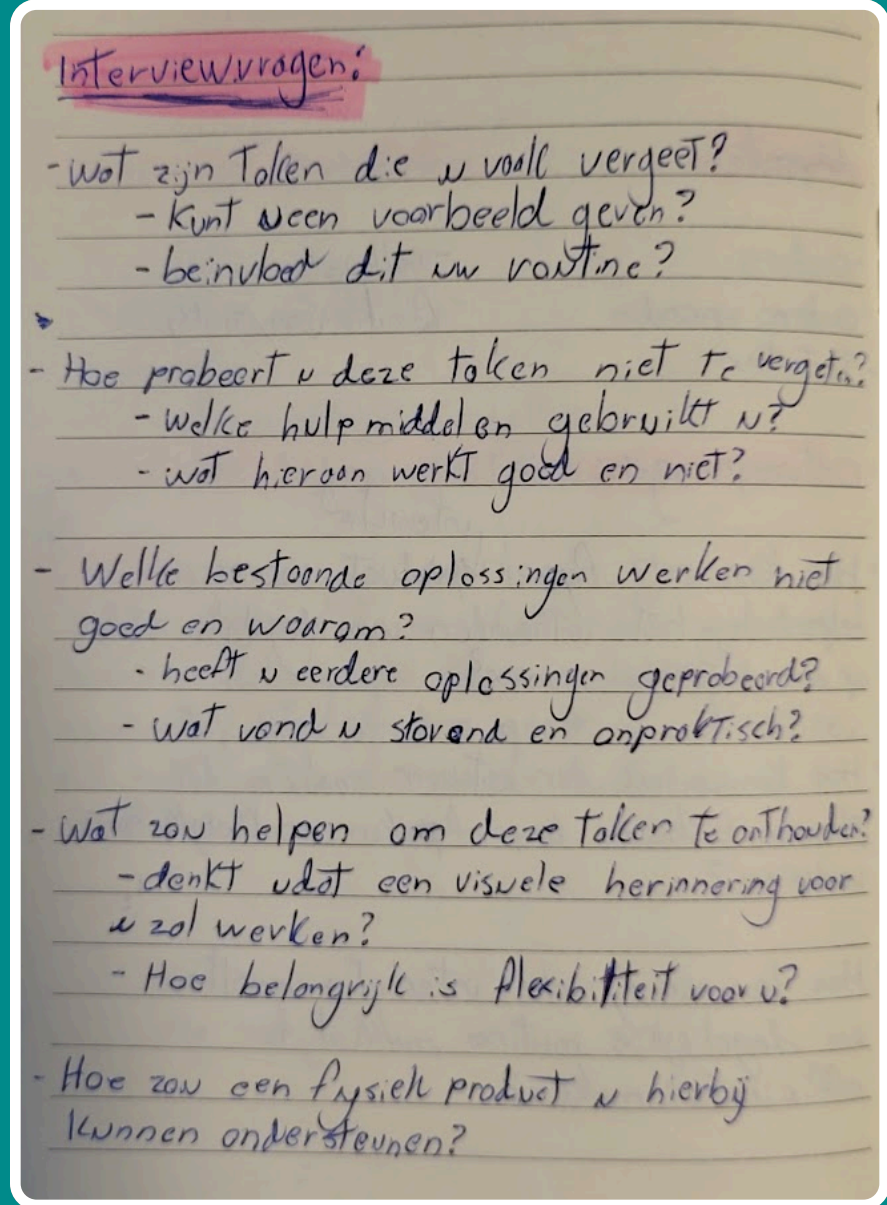 Interviewvragen:
- Wat zijn Taken die u vaak vergeet?
- Kunt u een voorbeeld geven?
- beïnvloed dit uw routine?
- Hoe probeert u deze taken niet te vergeten?
- Welke hulpmiddelen gebruikt u?
- wat hieraan werkt goed en niet?
- Welke bestaande oplossingen werken niet
goed en waarom?
- heeft u eerdere oplossingen geprobeerd?
- Wat vond u storend en onpraktisch?
- Wat zou helpen om deze taken te onthouden?
- denkt u dat een visuele herinnering voor
u zal werken?
- Hoe belangrijk is flexibiliteit voor u?
- Hoe zou een fysiek product u hierbij
kunnen ondersteunen?